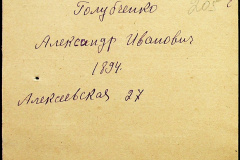 Голубченко
Александр Иванович
1894.
Алексеевская 27